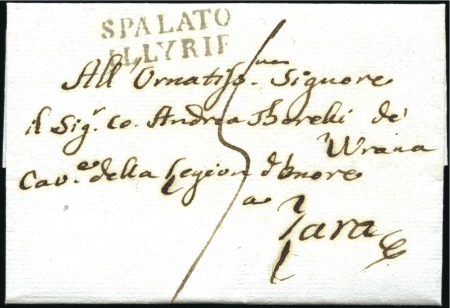 SPALATO
ILLYRIE
All' Ornatisso. Signore
il Sigr. Co. Andrea Borelli de'
Wrana
Cave. della Legion d'onore
a
Zara
5